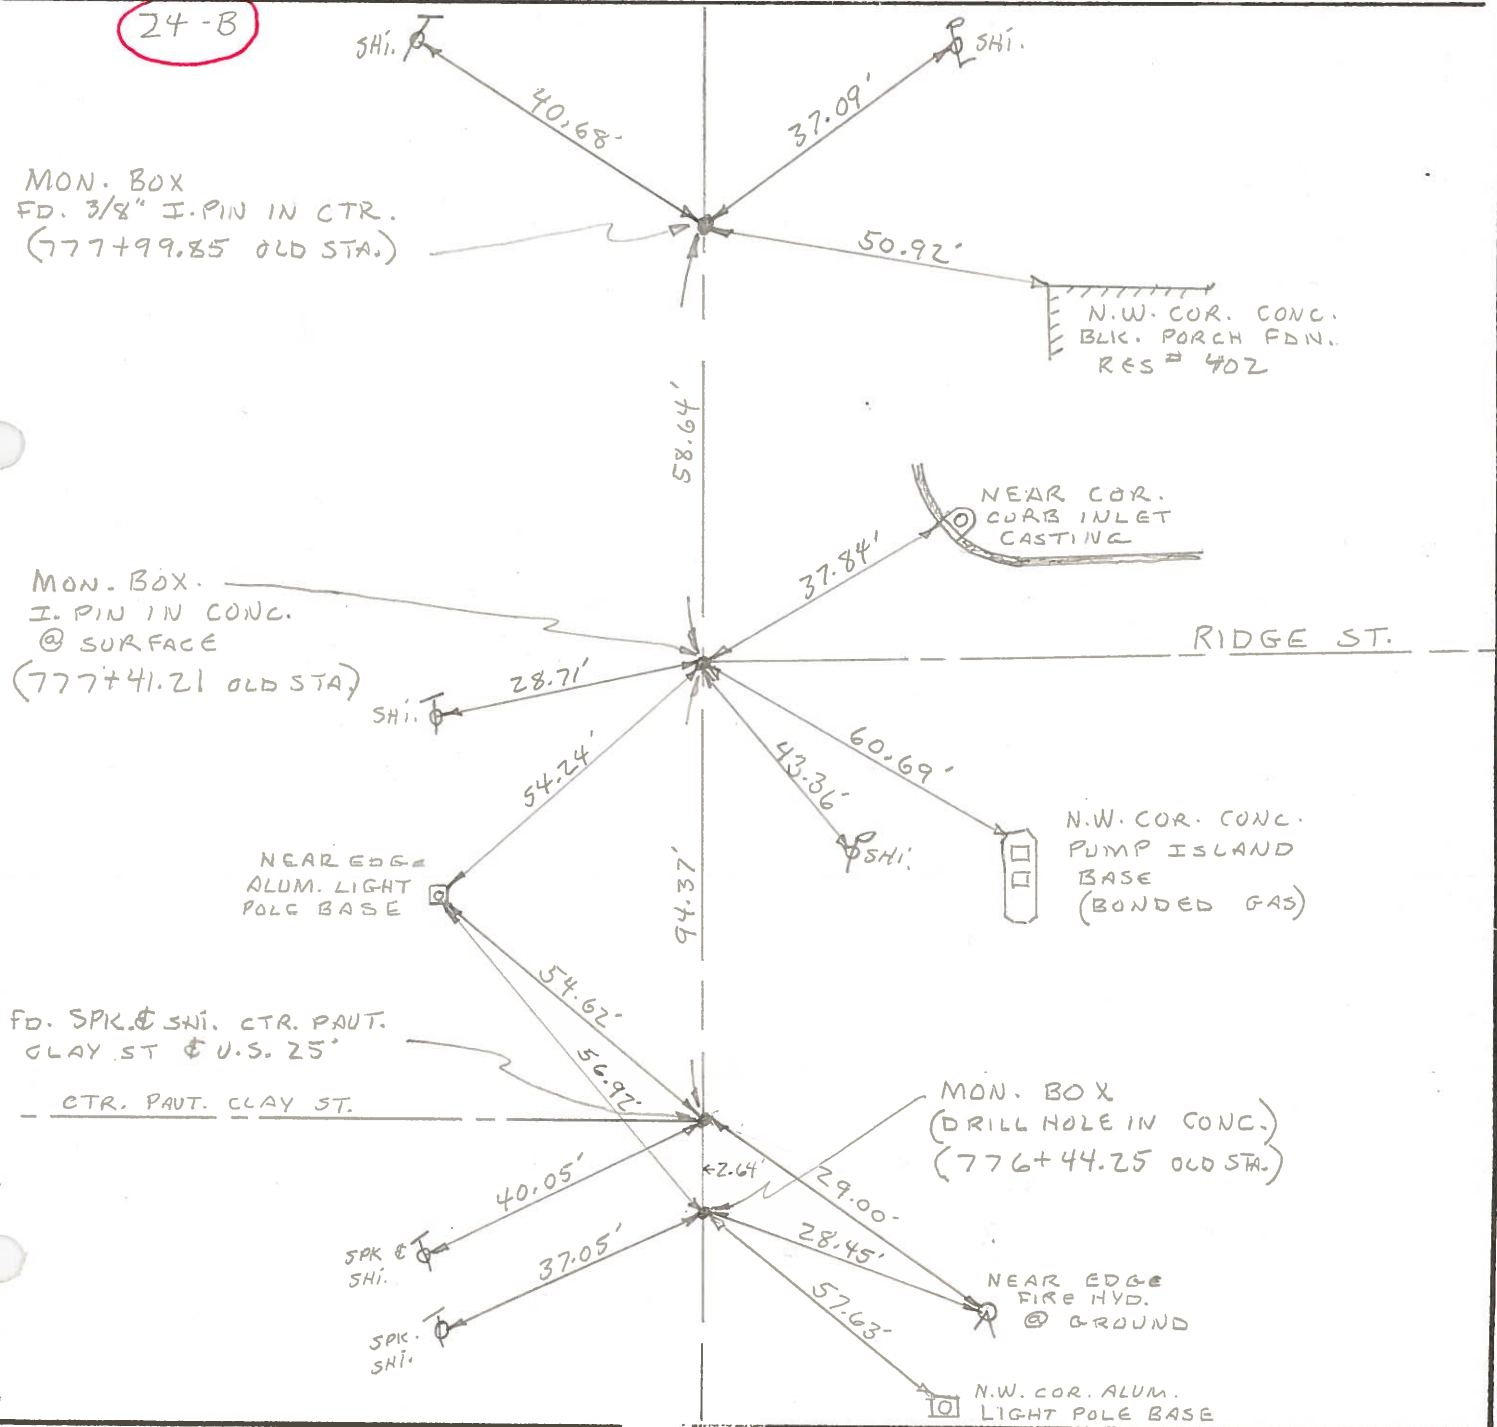 24-B
SHi.
SHi.
40.68'
37.09'
MON. BOX
FD. 3/8" I. PIN IN CTR.
(777+99.85 OLD STA.)
50.92'
N.W. COR. CONC.
BLK. PORCH FDN.
RES # 402
58.64'
NEAR COR.
CURB INLET
CASTING
37.84'
MON. BOX.
I. PIN IN CONC.
@ SURFACE
(777+41.21 OLD STA.)
RIDGE ST.
28.71'
SHi.
54.24'
43.36'
60.69'
SHi.
N.W. COR. CONC.
PUMP ISLAND
BASE
(BONDED GAS)
NEAR EDGE
ALUM. LIGHT
POLE BASE
94.37'
54.62'
56.92'
FD. SPK. & SHi. CTR. PAUT.
CLAY ST & U.S. 25
CTR. PAUT. CLAY ST.
MON. BOX
(DRILL HOLE IN CONC.)
(776+44.25 OLD STA.)
←2.64'
40.05'
29.00'
28.45'
37.05'
57.63'
SPK &
SHi.
SPK.
SHi.
NEAR EDGE
FIRE HYD.
@ GROUND
N.W. COR. ALUM.
LIGHT POLE BASE